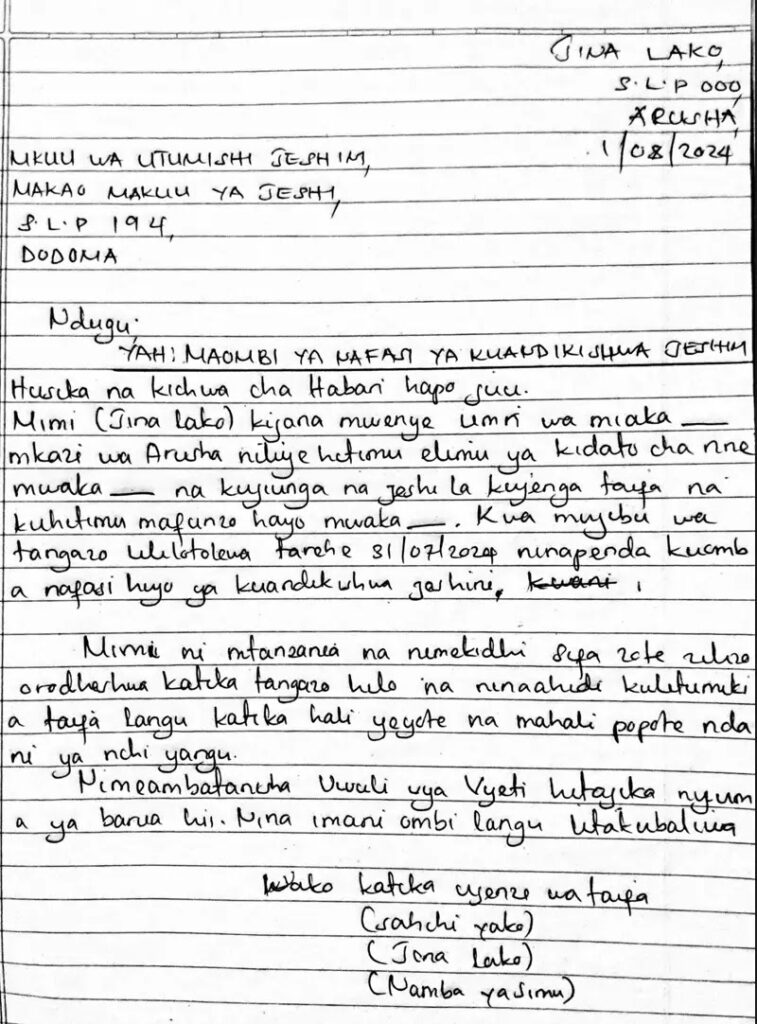 JINA LAKO,
S.L.P 000,
ARUSHA,
1/08/2024
MKUU WA UTUMISHI JESHINI,
MAKAO MAKUU YA JESHI,
S.L.P 194,
DODOMA
Ndugu;
YAH: MAOMBI YA NAFASI YA KUANDIKISHWA JESHINI
Husika na kichwa cha Habari hapo juu.
Mimi (Jina lako) kijana mwenye umri wa miaka ___
mkazi wa Arusha niliye hitimu elimu ya kidato cha nne
mwaka ___ na kujiunga na jeshi la kujenga taifa na
kuhitimu mafunzo hayo mwaka ___. Kwa mujibu wa
tangazo lililotolewa tarehe 31/07/2024 ninapenda kuomb
a nafasi hiyo ya kuandikishwa jeshini, kwani ,
Mimi ni mtanzania na nimekidhi sifa zote zilizo
orodheshwa katika tangazo hilo na ninaahidi kulitumiki
a taifa langu katika hali yeyote na mahali popote nda
ni ya nchi yangu.
Nimeambatanisha Uwuli vya Vyeti hitajika nyum
a ya barua hii. Nina imani ombi langu litakubaliwa
Wako katika ujenzi wa taifa
(sahihi yako)
(Jina lako)
(Namba ya simu)